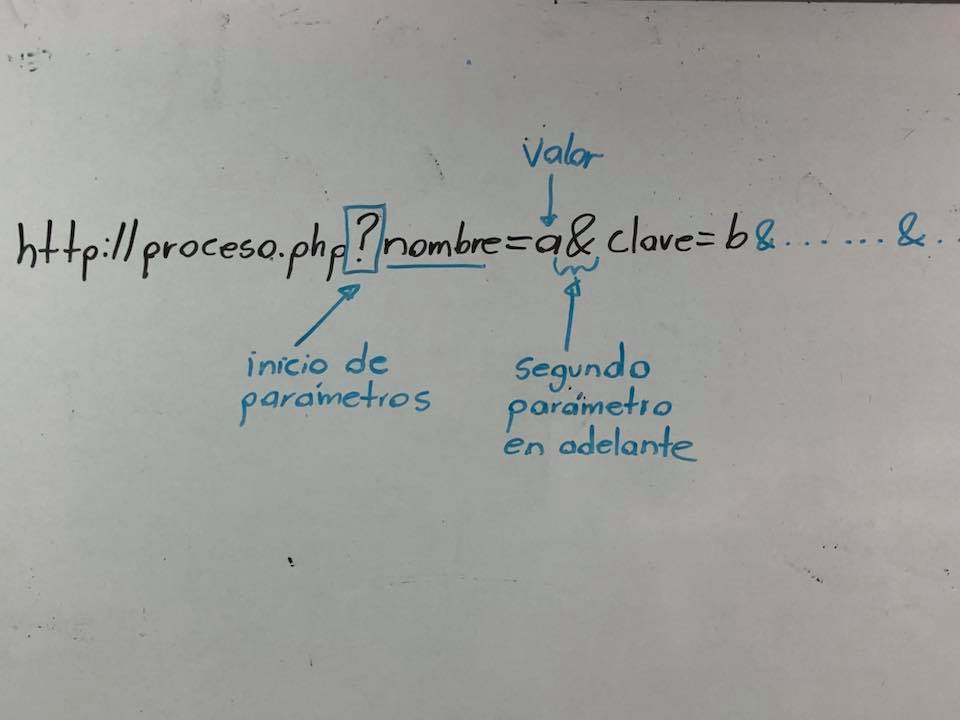 valor
http://proceso.php?nombre=a& clave=b&.......&..
inicio de
parámetros
segundo
parámetro
en adelante